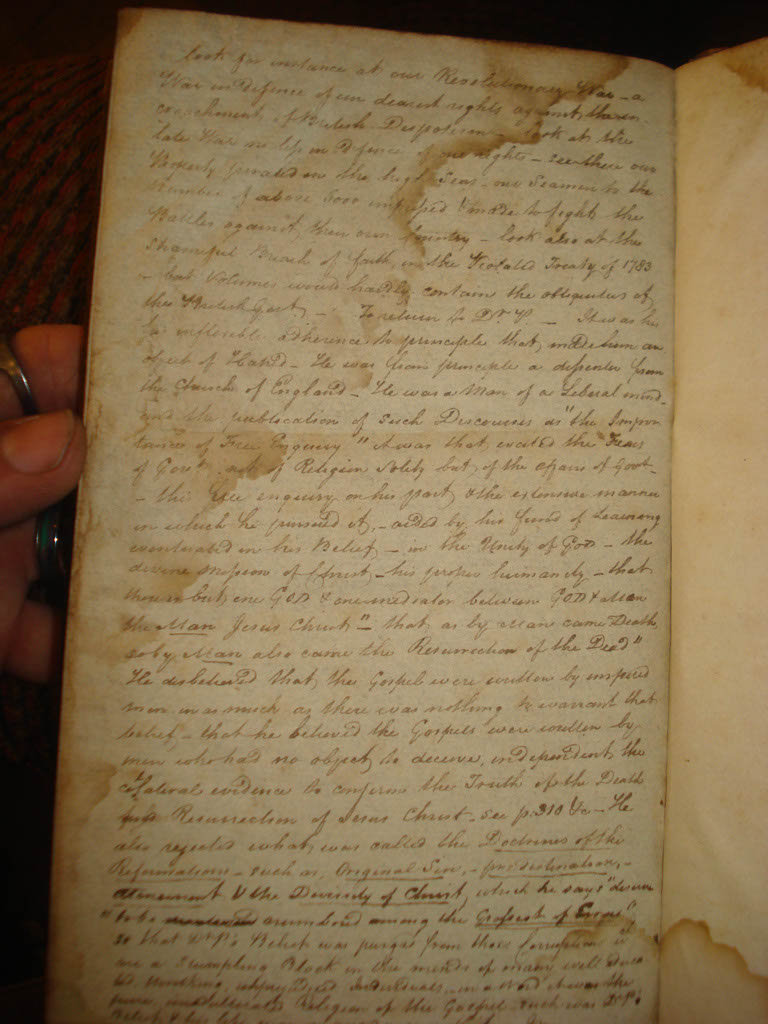 look for instance at our Revolutionary War - a
War in Defence of our dearest rights against the en-
croachments of British Despotism - look at the
late War no less in Defence of our rights - see there our
Property pirated on the high Seas - our Seamen to the
Number of above 6000 impressed & made to fight the
Battles against their own Country - look also at this
Shameful Breach of faith, in the Violated Treaty of 1783
- but Volumes would hardly contain the obliquities of
this British Govt - To return to Dr. P. - It was his
inflexible adherence to principle that made him an
object of Hatred - He was from principle a dissenter from
the Church of England - He was a Man of a Liberal mind -
and the publication of such Discourses as "the Impor-
tance of Free Enquiry" it was that excited the Fears
of Govt not of Religion Solely but of the of Govt -
- this free enquiry on his part & the extensive manner
in which he pursued it, - aided by his fund of Learning
eventuated in his Belief - in the Unity of God - the
divine mission of Christ - his proper humanity - that
there is but one GOD & one mediator between GOD & Man
the Man Jesus Christ" - that as by Man came Death
so by Man also came the Resurrection of the Dead"
He disbelieved that the Gospel were written by inspired
men in as much as there was nothing to warrant that
belief - that he believed the Gospels were written by
men who had no object to deceive, independent the
colateral evidence to confirm the Truth of the Death
and Resurrection of Jesus Christ - see p. 310 &c - He
also rejected what was called the Doctrines of the
Reformation - such as, Original Sin, - predestination, -
atonement & the Divinity of Christ, which he says "deserve
"to be numbered among the Grossest of Errors",
so that Dr. P's Belief was purged from those Corruptions
are a Stumpling Block in the minds of many well educa
ted, thinking, unprejudiced Individuals - in a Word it was the
pure, unadulterated Religion of the Gospel such was Dr. P's
Belief & his life